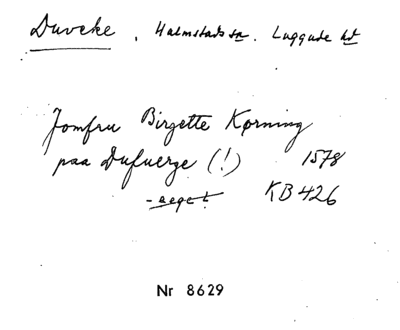 Duveke, Halmstads sn. Luggude hd
Jomfru Birgette Kørning
paa Dufuerge (!) 1578
KB 426
Nr 8629